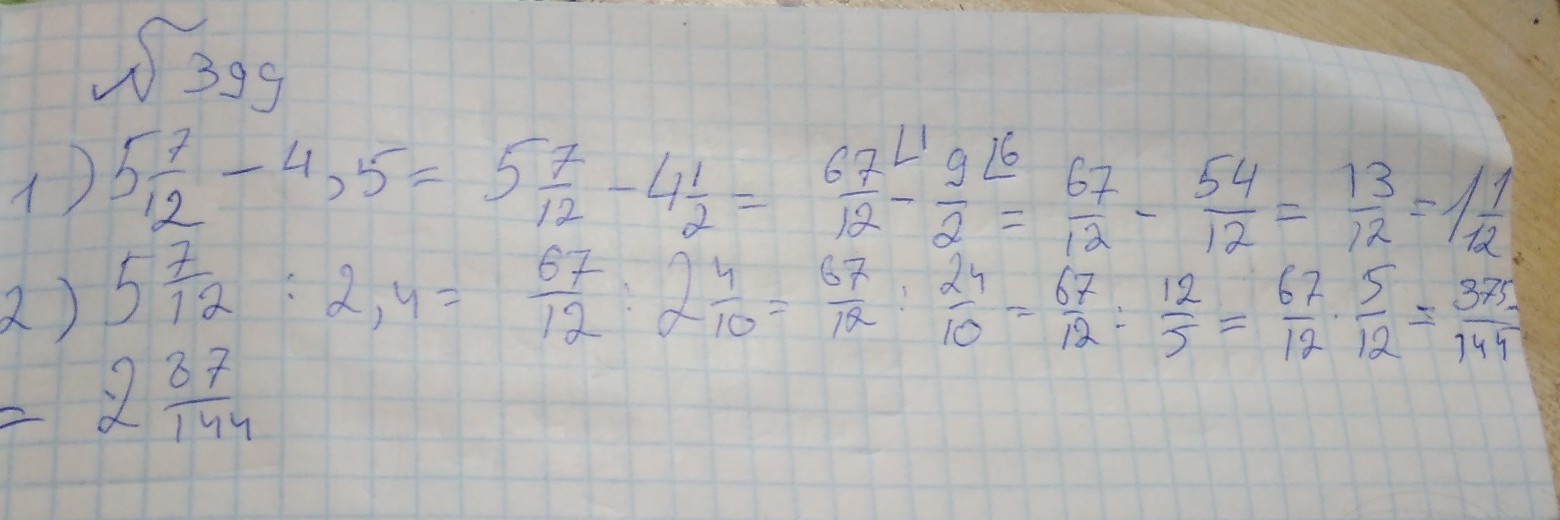 № 399
1) 5 7/12 - 4,5 = 5 7/12 - 4 1/2 = 67/12 ⌊1 - 9/2 ⌊6 = 67/12 - 54/12 = 13/12 = 1 1/12
2) 5 7/12 : 2,4 = 67/12 : 2 4/10 = 67/12 : 24/10 = 67/12 : 12/5 = 67/12 · 5/12 = 375/144
= 2 87/144